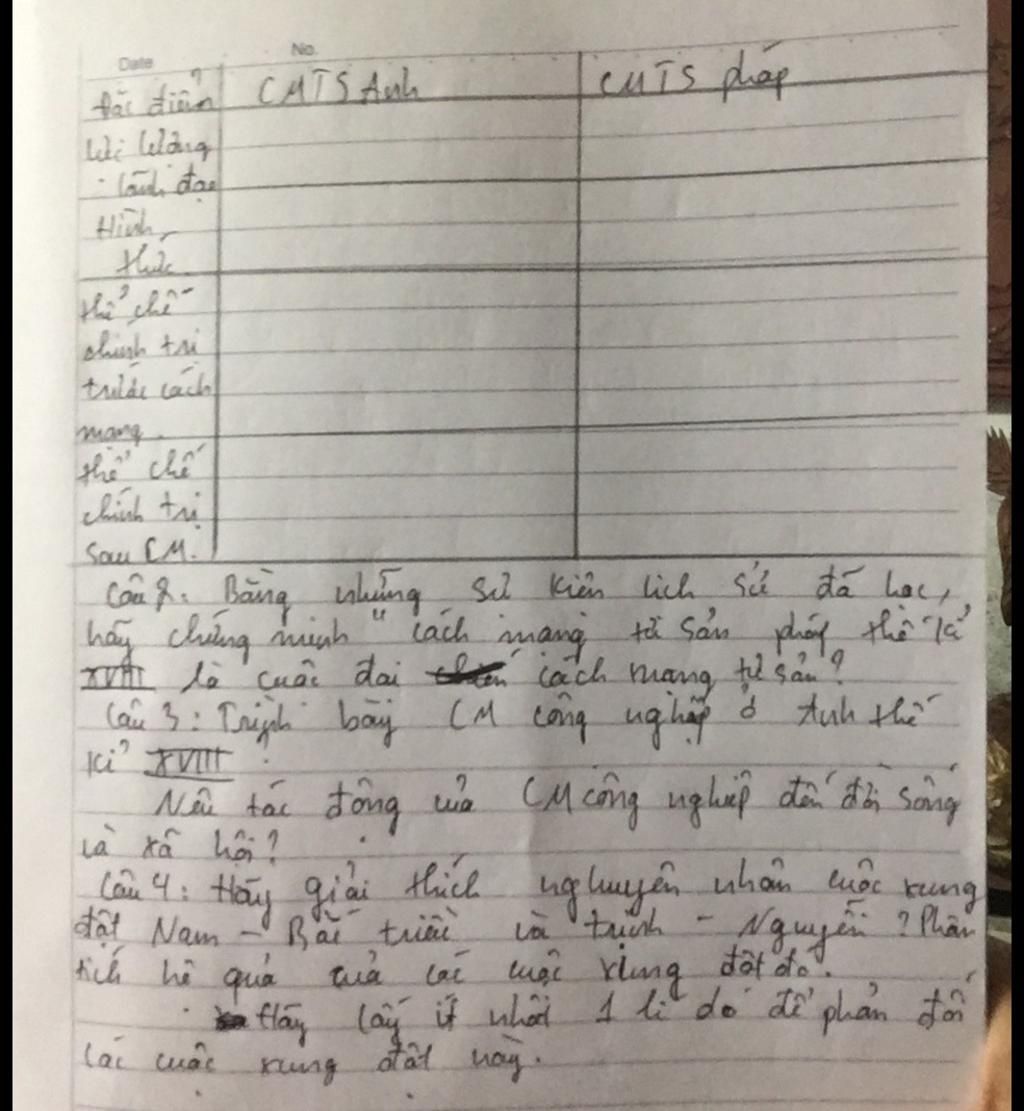 Date No.
Đặc điểm CMTS Anh CMTS pháp
Lực lượng
lãnh đạo
Hình
thức
thể chế
chính trị
trước cách
mạng
thể chế
chính trị
sau CM.
Câu 2: Bằng những sử kiện lịch sử đã học,
hãy chứng minh "cách mạng tư sản pháp thế kỉ
XVIII là cuộc đại cách mạng tư sản?
Câu 3: Trình bày CM công nghiệp ở Anh thế
kỉ XVIII
Nêu tác động của CM công nghiệp đến đời sống
và xã hội?
Câu 4: Hãy giải thích nghuyên nhân cuộc xung
đột Nam - Bắc triều và trịnh - Nguyễn? Phân
tích hệ quả của các cuộc xung đột đó.
Hãy lấy ít nhất 1 lí do để phản đối
các cuộc xung đột này.